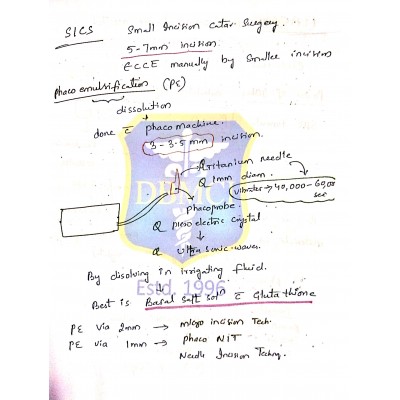 SICS Small Incision Catar Surgery.
5-7mm incision
ECCE manually by smaller incision
Phaco emulsification (PE)
dissolution
done c̄ phaco machine.
3-3.5mm incision.
Artitanium needle
Q 1mm diam.
vibrates → 40,000-60,00
sec
phacoprobe.
Q piezo electric crystal
Q ultra sonic waves.
By disolving in irrigating fluid.
Estd. 1996
Best is Basal salt solⁿ c̄ Glutathione
PE via 2mm → micro incision Tech.
PE via 1mm → phaco NIT
Needle Incision Techny.
DBMCI